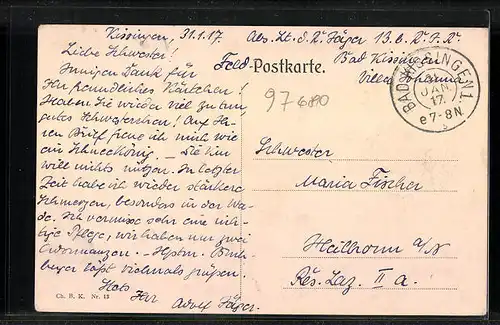 Kissingen, 31.1.17.
Abs. Lt. d. R. Jäger 13. b. R. I. R.
Bad Kissingen
Villa Johanna
Feld-Postkarte.
BAD KISSINGEN 1.
JAN.
17.
7-8N.
97680
Liebe Schwester!
Innigen Dank für
Ihr freundliches Kärtchen!
Haben Sie wieder viel zu tun,
gutes Schwesterchen! Auf Ih-
ren Brief freue ich mich wie
ein Schneekönig. - Die Kur
will nichts nützen. In letzter
Zeit habe ich wieder stärkere
Schmerzen, besonders in der Wa-
de. Ich vermisse sehr eine rich-
tige Pflege, wir haben nur zwei
Ordonnanzen. - Hptm.
läßt Vielmals grüßen.
Ihr
Adolf Jäger.
Schwester
Maria Fischer
Heilbronn a/N
Res. Laz. II a.
Ch. B. K. Nr. 13